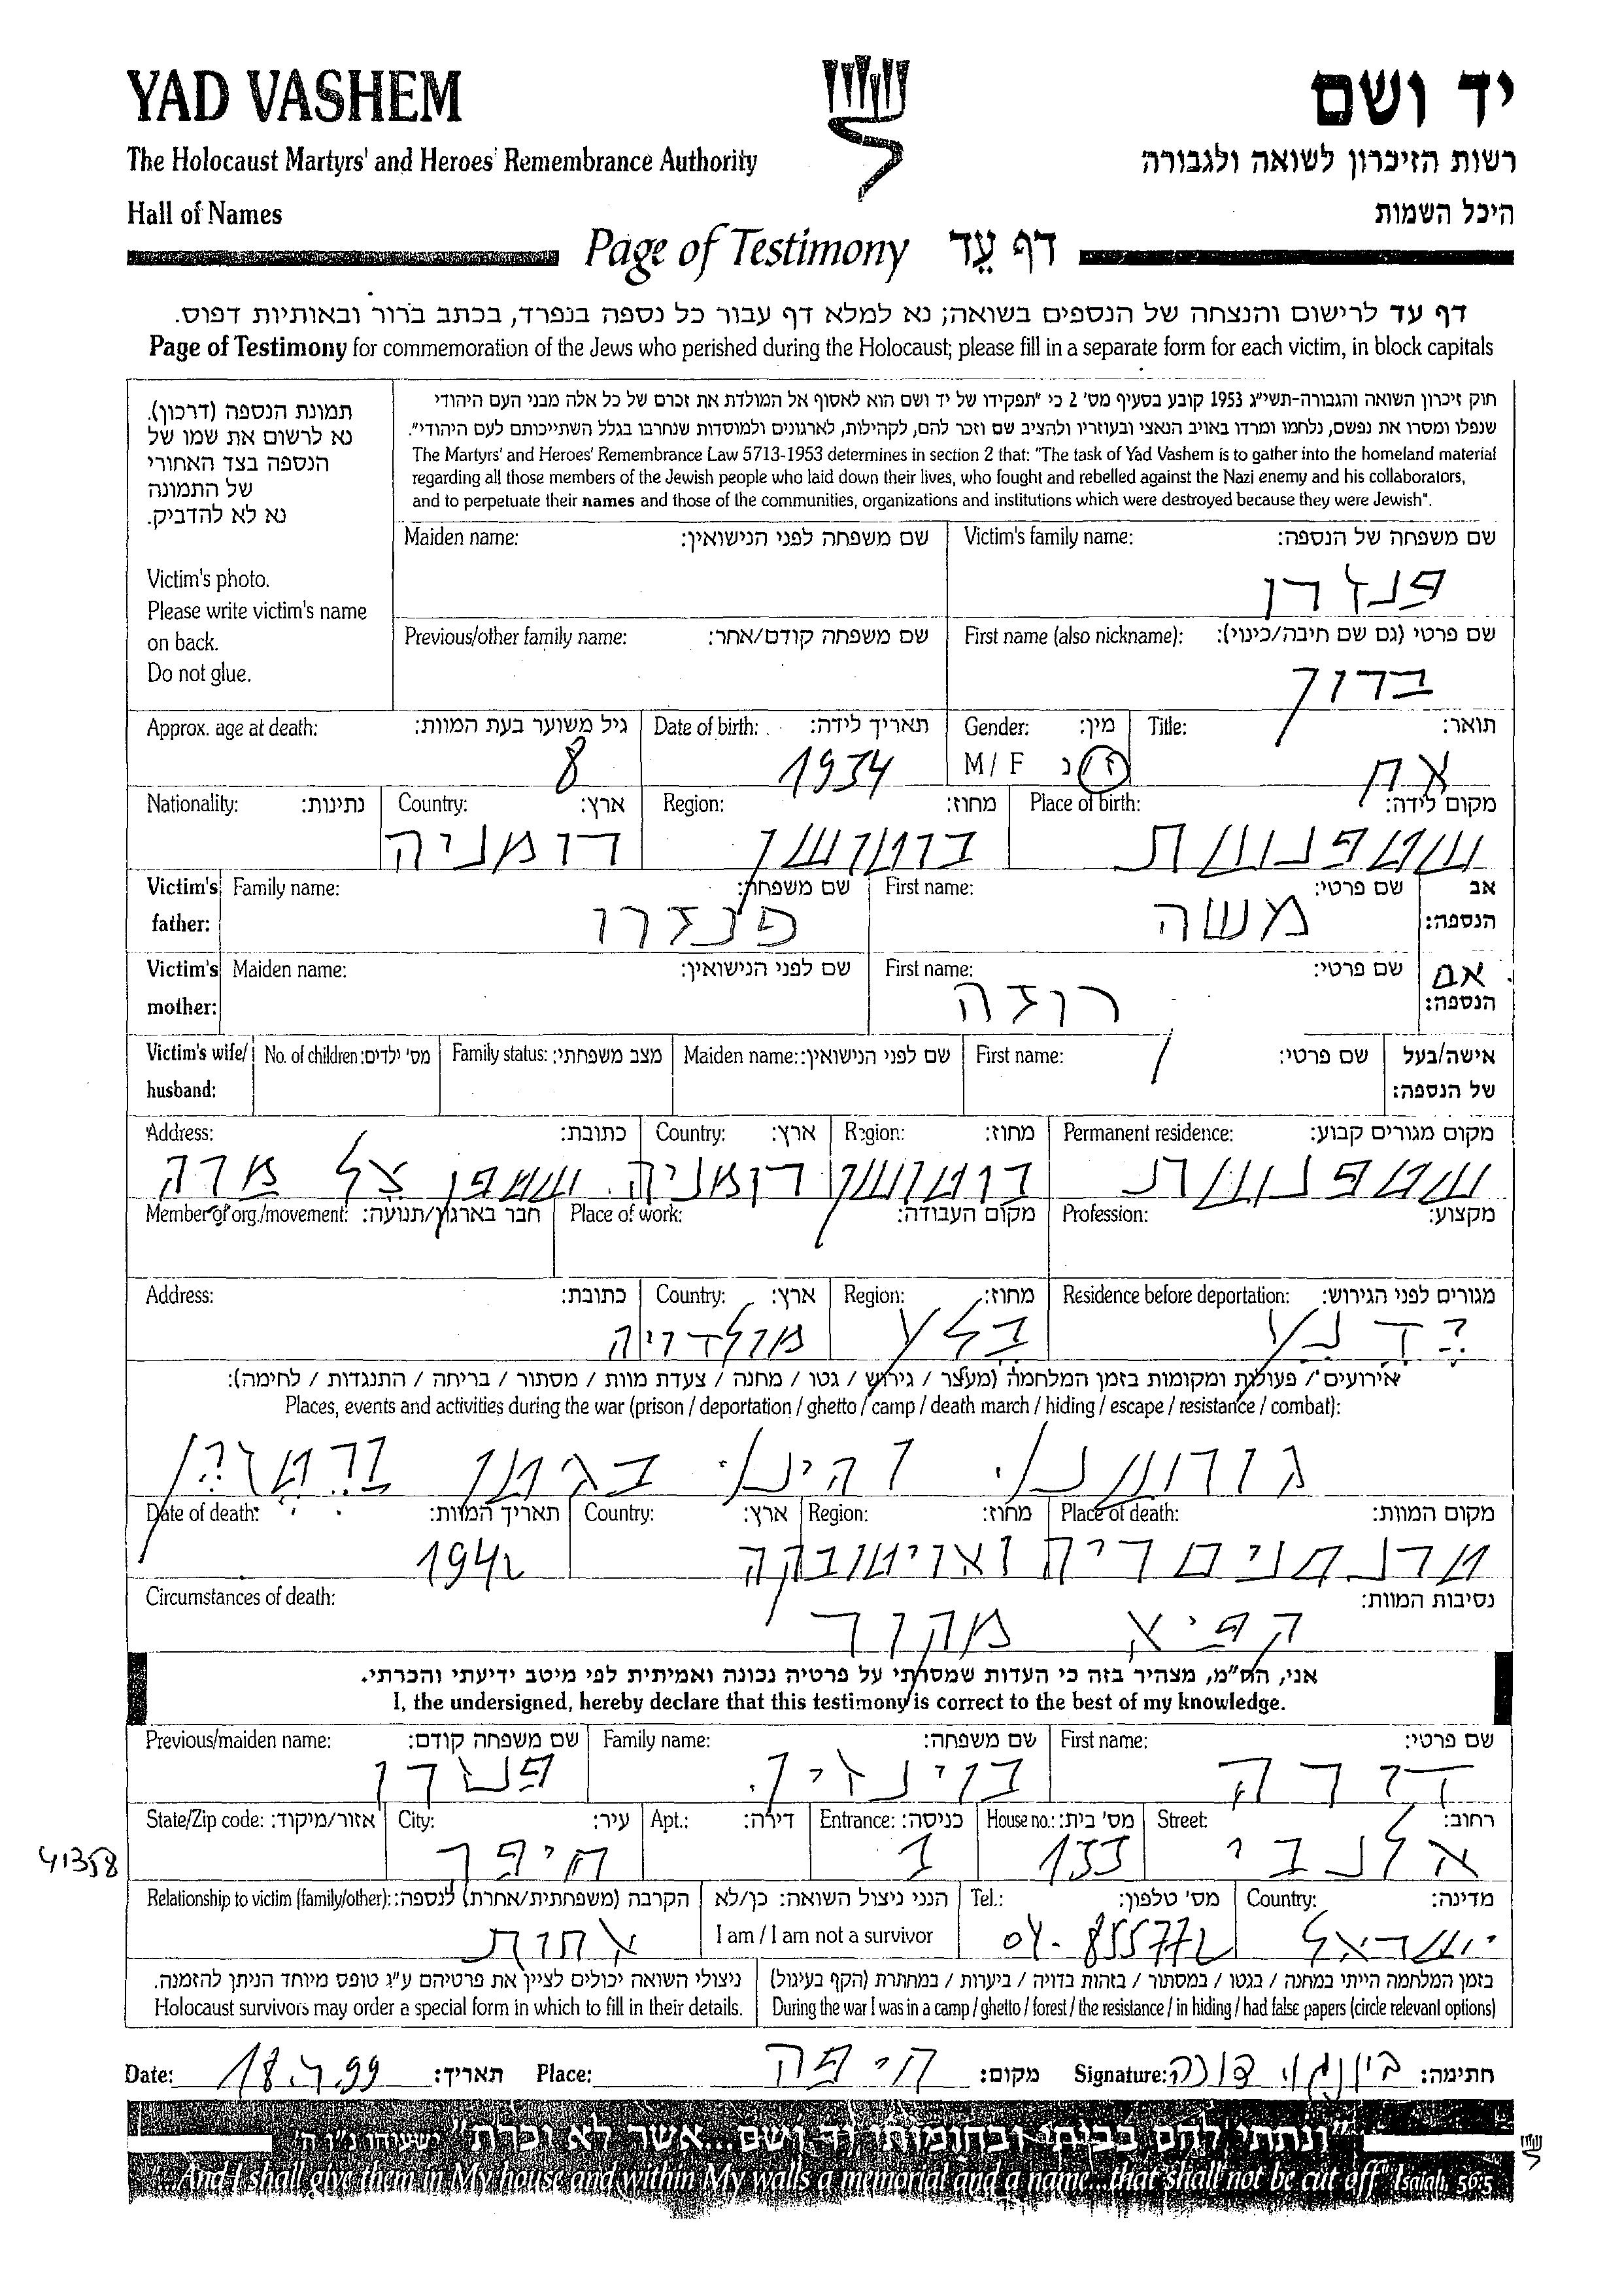 YAD VASHEM
יד ושם
The Holocaust Martyrs' and Heroes' Remembrance Authority
רשות הזיכרון לשואה ולגבורה
Hall of Names
היכל השמות
Page of Testimony דף עֵד
דף עד לרישום והנצחה של הנספים בשואה; נא למלא דף עבור כל נספה בנפרד, בכתב ברור ובאותיות דפוס.
Page of Testimony for commemoration of the Jews who perished during the Holocaust; please fill in a separate form for each victim, in block capitals
חוק זיכרון השואה והגבורה-תשי"ג 1953 קובע בסעיף מס' 2 כי "תפקידו של יד ושם הוא לאסוף אל המולדת את זכרם של כל אלה מבני העם היהודי
שנפלו ומסרו את נפשם, נלחמו ומרדו באויב הנאצי ובעוזריו ולהציב שם וזכר להם, לקהילות, לארגונים ולמוסדות שנחרבו בגלל השתייכותם לעם היהודי".
The Martyrs' and Heroes' Remembrance Law 5713-1953 determines in section 2 that: "The task of Yad Vashem is to gather into the homeland material
regarding all those members of the Jewish people who laid down their lives, who fought and rebelled against the Nazi enemy and his collaborators,
and to perpetuate their names and those of the communities, organizations and institutions which were destroyed because they were Jewish".
תמונת הנספה (דרכון).
נא לרשום את שמו של
הנספה בצד האחורי
של התמונה
נא לא להדביק.
Victim's photo.
Please write victim's name
on back.
Do not glue.
Victim's family name: שם משפחה של הנספה:
פנזרו
Maiden name: שם משפחה לפני הנישואין:
First name (also nickname): שם פרטי (גם שם חיבה/כינוי):
ברוך
Previous/other family name: שם משפחה קודם/אחר:
Title: תואר:
אח
Gender: מין:
M / F ז/נ
Date of birth: תאריך לידה:
1934
Approx. age at death: גיל משוער בעת המוות:
8
Place of birth: מקום לידה:
שטפנשת
Region: מחוז:
בוטושן
Country: ארץ:
רומניה
Nationality: נתינות:
Victim's father: אב הנספה:
First name: שם פרטי:
משה
Family name: שם משפחה:
פנזרו
Victim's mother: אם הנספה:
First name: שם פרטי:
רוזה
Maiden name: שם לפני הנישואין:
Victim's wife/ husband: אישה/בעל של הנספה:
First name: שם פרטי:
Maiden name: שם לפני הנישואין:
Family status: מצב משפחתי:
No. of children: מס' ילדים:
Permanent residence: מקום מגורים קבוע:
שטפנשת
Region: מחוז:
בוטושן
Country: ארץ:
רומניה
Address: כתובת:
שטפן צל מרה
Profession: מקצוע:
Place of work: מקום העבודה:
Member of org./movement: חבר בארגון/תנועה:
Residence before deportation: מגורים לפני הגירוש:
Region: מחוז:
בלץ
Country: ארץ:
מולדויה
Address: כתובת:
אירועים / פעולות ומקומות בזמן המלחמה (מעצר / גירוש / גטו / מחנה / צעדת מוות / מסתור / בריחה / התנגדות / לחימה):
Places, events and activities during the war (prison / deportation / ghetto / camp / death march / hiding / escape / resistance / combat):
גורשנו והינו בגטו
Place of death: מקום המוות:
טרנסניסטריה
Region: מחוז:
Country: ארץ:
Date of death: תאריך המוות:
1942
Circumstances of death: נסיבות המוות:
קפיא מקור
אני, הח"מ, מצהיר בזה כי העדות שמסרתי על פרטיה נכונה ואמיתית לפי מיטב ידיעתי והכרתי.
I, the undersigned, hereby declare that this testimony is correct to the best of my knowledge.
First name: שם פרטי:
דורה
Family name: שם משפחה:
Previous/maiden name: שם משפחה קודם:
פנזרו
Street: רחוב:
אלנבי
House no.: מס' בית:
133
Entrance: כניסה:
1
Apt.: דירה:
City: עיר:
חיפה
State/Zip code: אזור/מיקוד:
41358
Country: מדינה:
ישראל
Tel.: מס' טלפון:
04-855772
הנני ניצול השואה: כן/לא
I am / I am not a survivor
Relationship to victim (family/other): הקרבה (משפחתית/אחרת) לנספה:
אחות
בזמן המלחמה הייתי במחנה / בגטו / במסתור / בזהות בדויה / ביערות / במחתרת (הקף בעיגול)
During the war I was in a camp / ghetto / forest / the resistance / in hiding / had false papers (circle relevant options)
ניצולי השואה יכולים לציין את פרטיהם ע"ג טופס מיוחד הניתן להזמנה.
Holocaust survivors may order a special form in which to fill in their details.
Date: 18.4.99 תאריך:
Place: חיפה מקום:
Signature: דורה חתימה:
"ונתתי להם בביתי ובחומותי יד ושם...אשר לא יכרת" ישעיהו נ"ו ה'
"...And I shall give them in My house and within My walls a memorial and a name...that shall not be cut off" Isaiah, 56:5